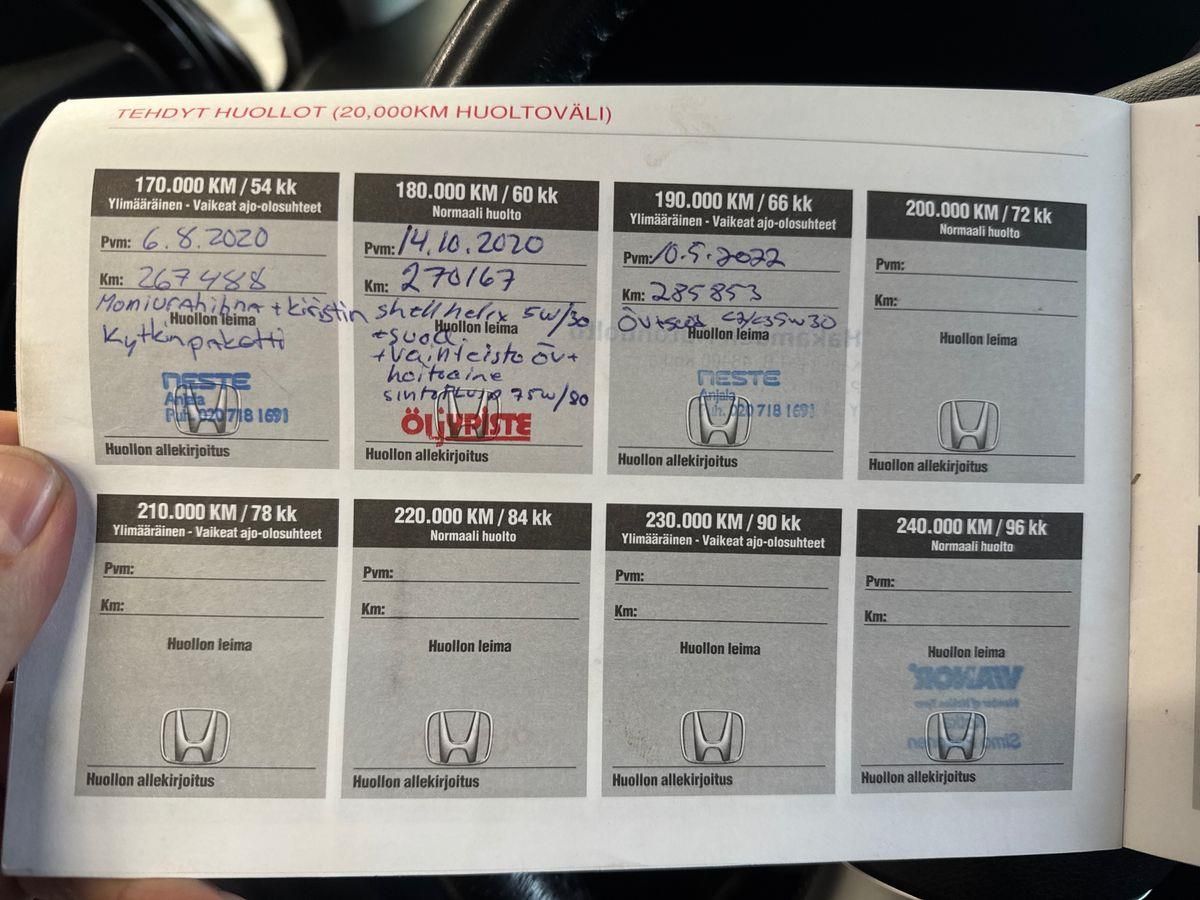 TEHDYT HUOLLOT (20,000KM HUOLTOVÄLI)
170.000 KM / 54 kk
Ylimääräinen - Vaikeat ajo-olosuhteet
Pvm: 6.8.2020
Km: 267488
Moniurahihna + kiristin
Huollon leima
Kytkinpaketti
NESTE
Anjala
Puh. 020 718 1691
Huollon allekirjoitus
180.000 KM / 60 kk
Normaali huolto
Pvm: 14.10.2020
Km: 270167
shell helix 5w/30
Huollon leima
+suod.
+vaihteisto öv+
hoitoaine
75w/80
Huollon allekirjoitus
190.000 KM / 66 kk
Ylimääräinen - Vaikeat ajo-olosuhteet
Pvm: 10.5.2022
Km: 285853
Huollon leima
NESTE
Anjala
Puh. 020 718 1691
Huollon allekirjoitus
200.000 KM / 72 kk
Normaali huolto
Pvm:
Km:
Huollon leima
Huollon allekirjoitus
210.000 KM / 78 kk
Ylimääräinen - Vaikeat ajo-olosuhteet
Pvm:
Km:
Huollon leima
Huollon allekirjoitus
220.000 KM / 84 kk
Normaali huolto
Pvm:
Km:
Huollon leima
Huollon allekirjoitus
230.000 KM / 90 kk
Ylimääräinen - Vaikeat ajo-olosuhteet
Pvm:
Km:
Huollon leima
Huollon allekirjoitus
240.000 KM / 96 kk
Normaali huolto
Pvm:
Km:
Huollon leima
VIANOR
Huollon allekirjoitus